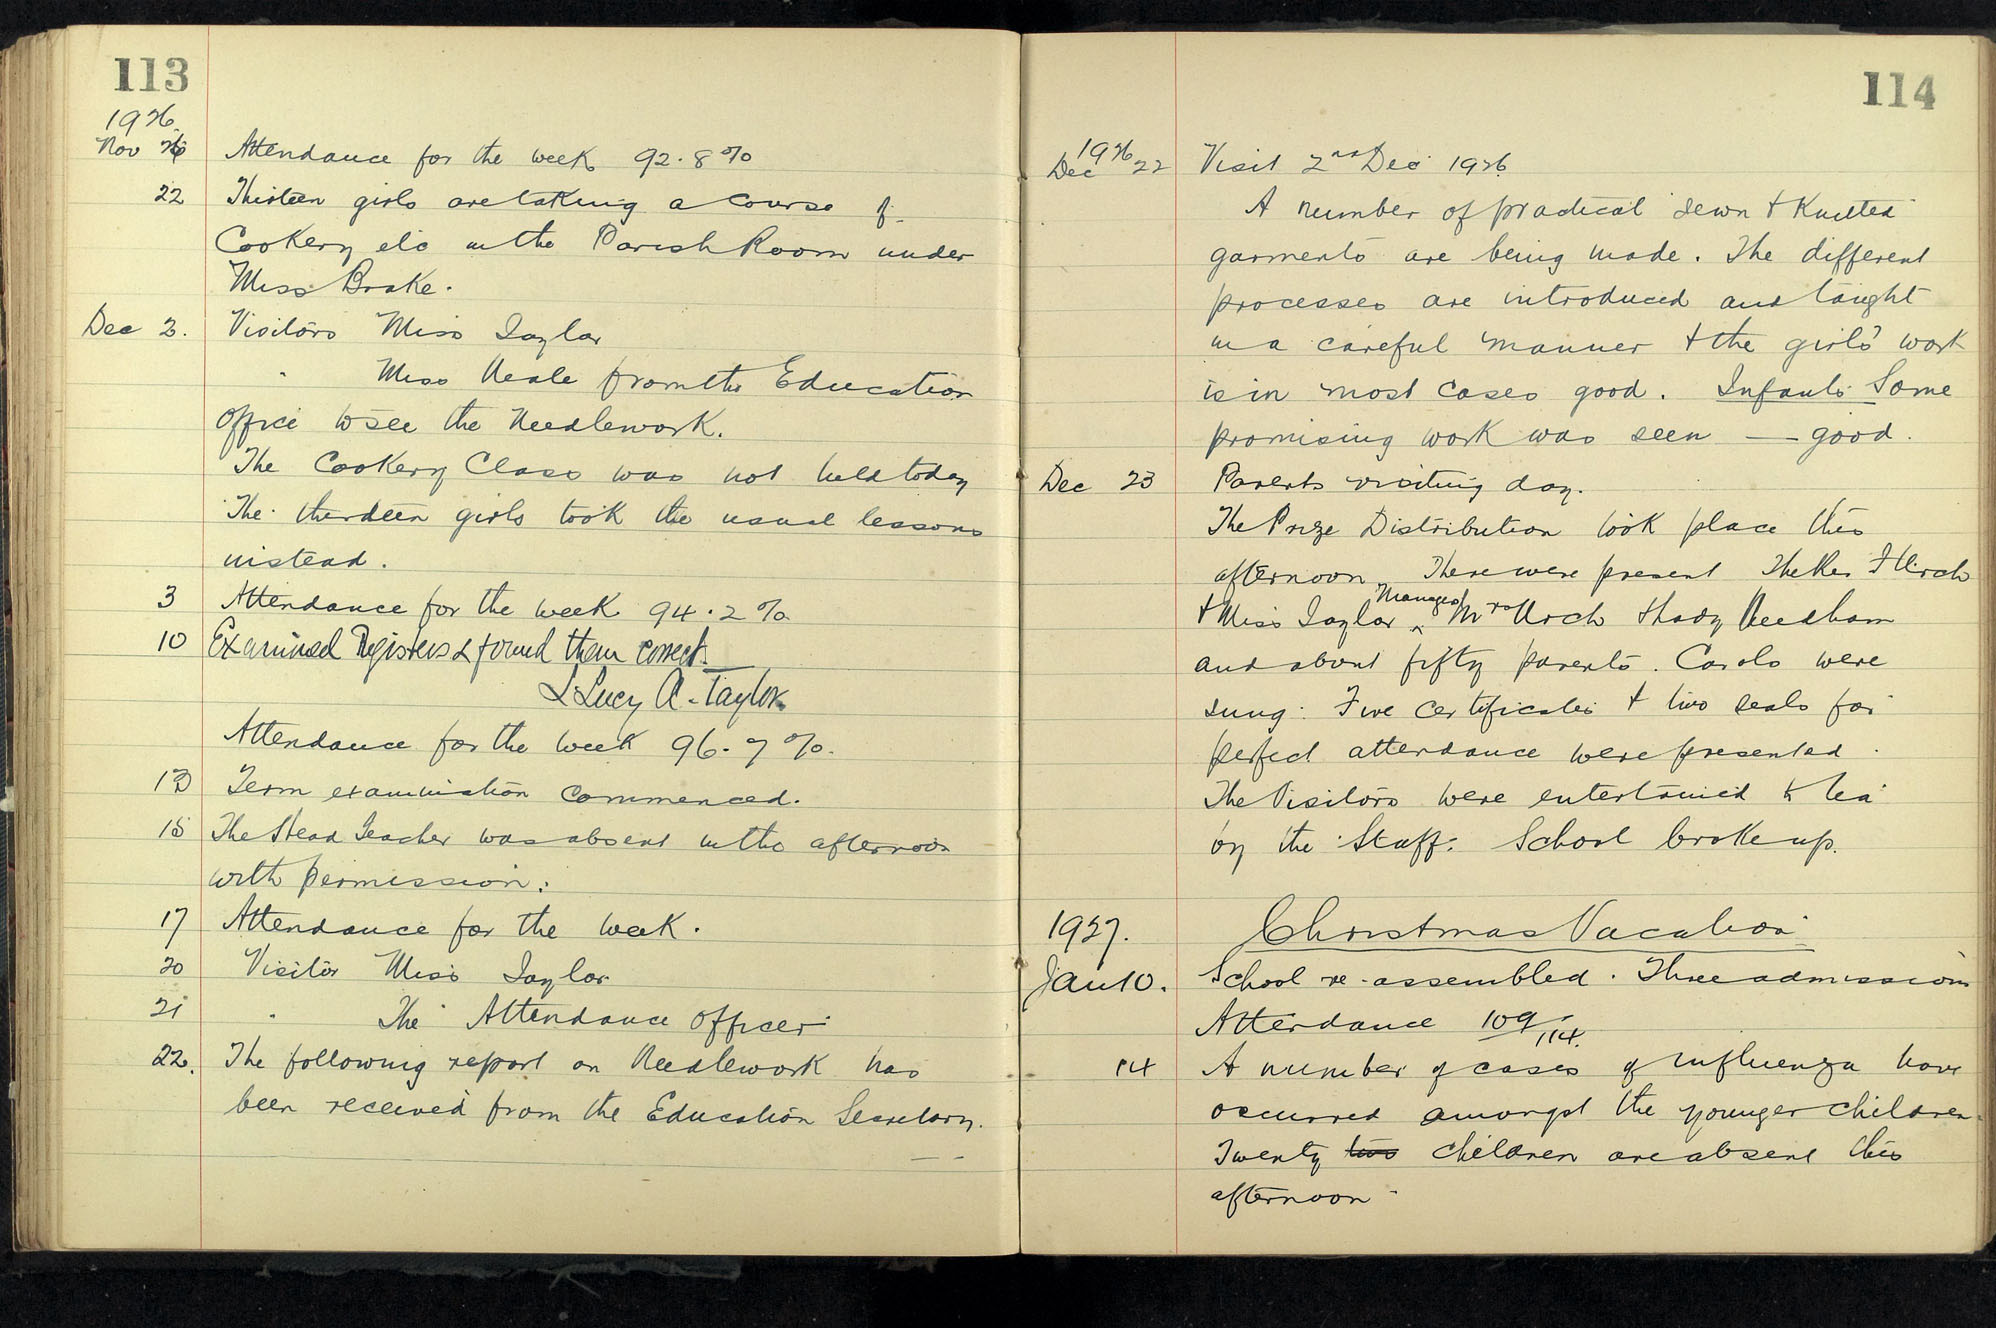 113
1926
Nov 26 Attendance for the week 92.8%
22 Thirteen girls are taking a course of
Cookery etc in the Parish Room under
Miss Brake.
Dec 2. Visitors Miss Taylor
" Miss Neale from the Education
Office to see the Needlework.
The Cookery Class was not held today
The thirteen girls took the usual lessons
instead.
3 Attendance for the week 94.2%
10 Examined Registers & found them correct.
Lucy A. Taylor
Attendance for the week 96.7%.
13 Term examination commenced.
15 The Head Teacher was absent in the afternoon
with permission.
17 Attendance for the week.
20 Visitor Miss Taylor
21 " The Attendance Officer
22. The following report on Needlework has
been received from the Education Secretary.
114
1926
Dec 22 Visit 2nd Dec 1926
A number of practical sewn & knitted
garments are being made. The different
processes are introduced and taught
in a careful manner & the girls' work
is in most cases good. Infants Some
promising work was seen — good.
Dec 23 Parents visiting day.
The Prize Distribution took place this
afternoon. There were present The Rev Urch
& Miss Taylor Managers Mrs Urch & Lady Needham
and about fifty parents. Carols were
sung. Five certificates & two seals for
perfect attendance were presented.
The Visitors were entertained to tea
by the Staff. School broke up.
Christmas Vacation
1927.
Jan 10. School re-assembled. Three admissions
Attendance 109/114.
14 A number of cases of influenza have
occurred amongst the younger children.
Twenty two children are absent this
afternoon